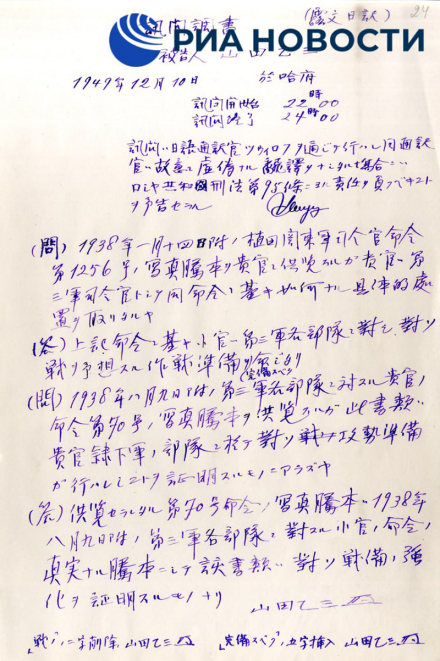 (露文日訳)
24
訊問調書
РИА НОВОСТИ
被告人 山田乙三
1949年12月10日 於哈府
訊問開始 22時00
訊問終了 24時00
訊問ハ日語通訳官ツヴイロフヲ通じテ行ハレ同通訳
官ハ故意ニ虚偽ナル翻譯ヲナシタル場合ハ
ロシヤ共和國刑法第95條ニヨル責任ヲ負フベキコト
ヲ予告セラル
(問) 1938年一月十四日附ノ植田関東軍司令官命令
第1256号ノ寫真謄本ヲ貴官ニ供覧スルガ貴官ハ第
三軍司令官トシテ同命令ニ基キ如何ナル具体的處
置ヲ取リタルヤ
(答) 上記命令ニ基キ小官ハ第三軍各部隊ニ對シ、對ソ
戦ヲ予想スル作戦準備ヲ命じタリ
(完備スベク)
(問) 1938年八月九日附ノ第三軍各部隊ニ対スル貴官ノ
命令第70号ノ寫真謄本ヲ供覧スルガ此書類ハ
貴官隷下軍ノ部隊ニ於テ對ソ戦ノ攻勢準備
ガ行ハレシコトヲ証明スルモノニアラズヤ
(答) 供覧セラレタル第70号命令ノ寫真謄本ハ1938年
八月九日附ノ第三軍各部隊ニ對スル小官ノ命令ノ
真実ナル謄本ニシテ該書類ハ對ソ戦備ノ強
化ヲ証明スルモノナリ
山田乙三
「戦ヲ」ノ二字削除 山田乙三 「完備スベク」ノ五字挿入 山田乙三